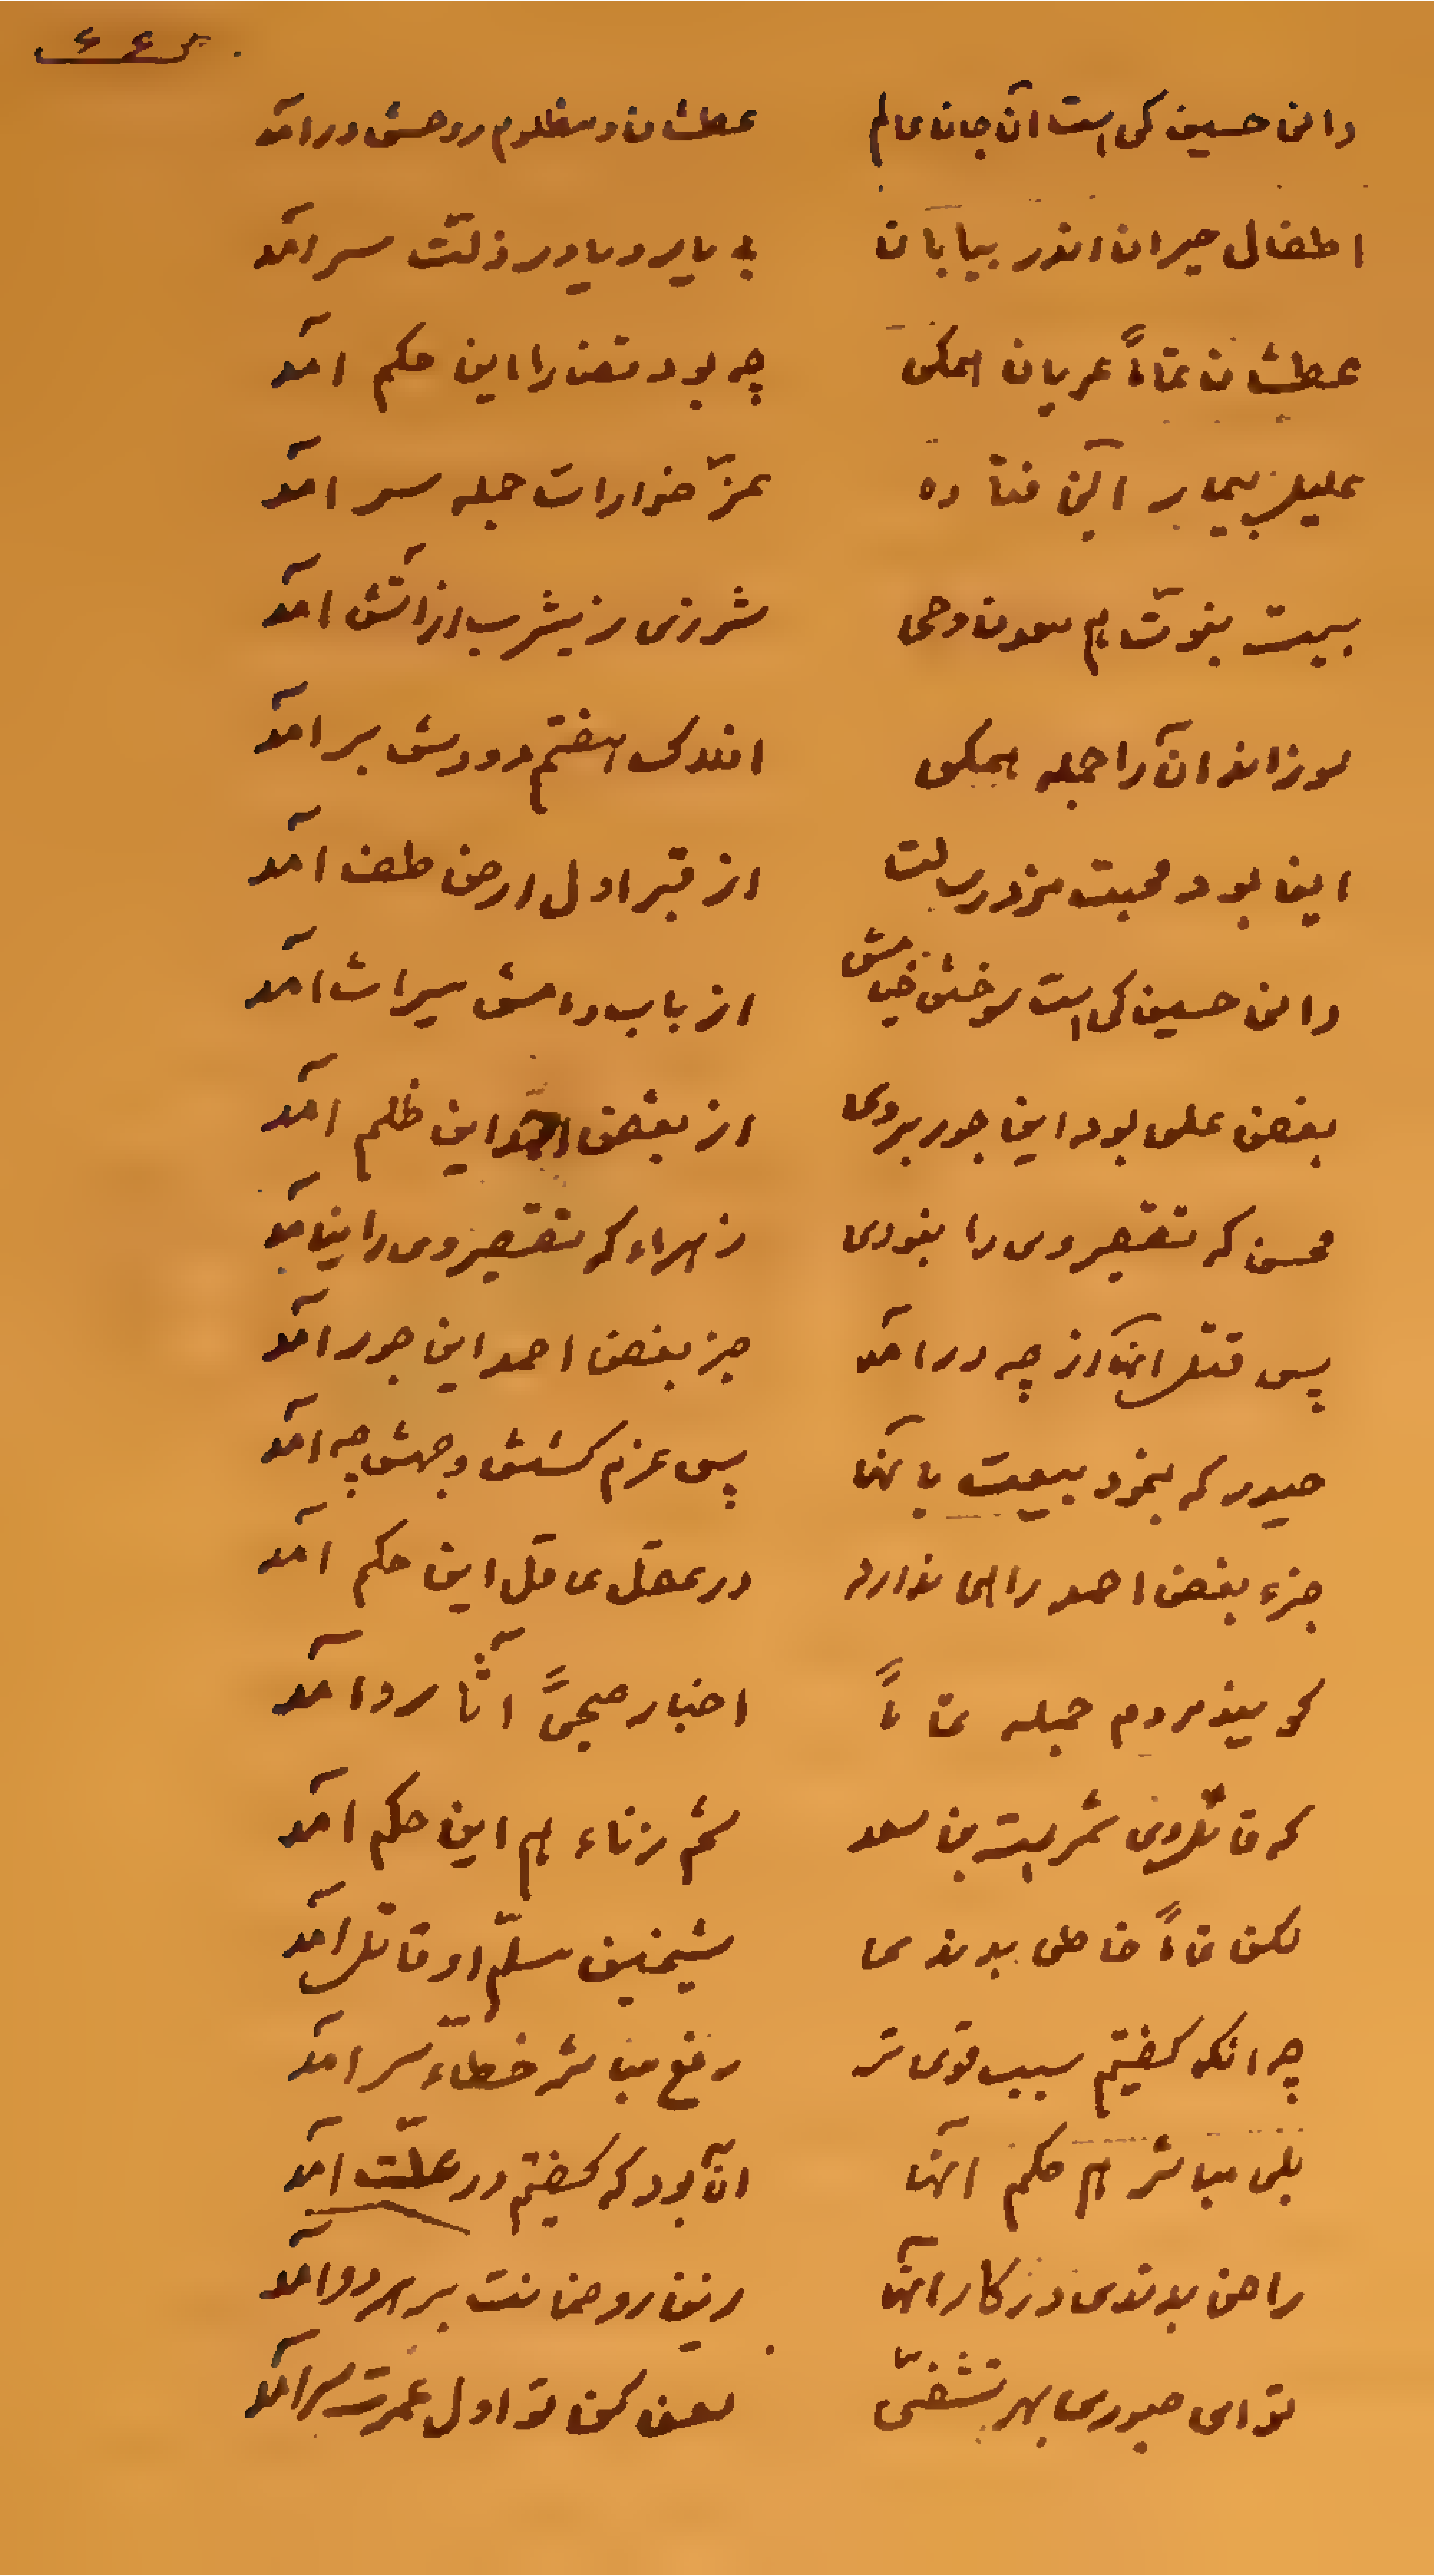 دانی حسین کی است آن جان عالم عطشان و مظلوم روحش درآمد
اطفال حیران اندر بیابان بی یار و یاور ذلّت سرآمد
عطشان تماماً عریان همگی چه بود تقصیرا این حکم آمد
علیل بیمار افتاده عزّ جمله سر آمد
بیت نبوّت هم معدن وحی شرزی ز یثرب از آتش آمد
سوزاندن آن را جمله همگی هفتم دودش برآمد
این بود محبت مزد رسالت از قبر اول ارض طف آمد
دانی حسین کی است سوختن خیامش از باب و مامش میراث آمد
بغض علی بود این جور بر وی از بغض این ظلم آمد
محسن که تقصیر وی را نبودی زهراء که تقصیر وی را نیامد
پس قتل آنها از چه درآمد جز بغض احمد این جور آمد
حیدر که بنمود بیعت با آنها پس عزم کشتنش وجهش چه آمد
جزء بغض احمد راهی ندارد در عقل عاقل این حکم آمد
گویند مردم جمله تماماً اخبار صحیحاً آثار روا آمد
که قاتل وی شمر است بن سعد حکم آمد
لکن تماماً خاطی بدندی شیخین مسلّم او قاتل آمد
چرا آنکه گفتیم سبب قوی‌تر رفع مباشر خطاء سرآمد
بلی مباشر هم حکم آنها آن بود که گفتیم در علّت آمد
راضی بدندی در کار آنها بر هر دو آمد
تو ای صبوری بهر تشفّی لعن کن تو اول عمرت سرآمد